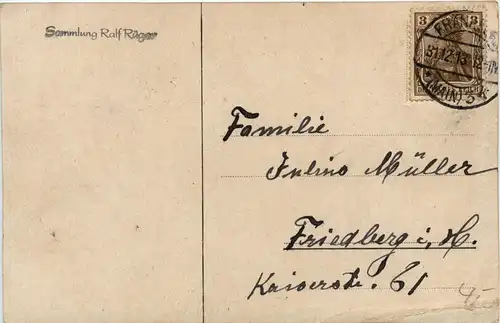 Sammlung Ralf Rüger
3 3
31.12.13
(MAIN) 3
Familie
Julius Müller
Friedberg i. H.
Kaiserstr. 61